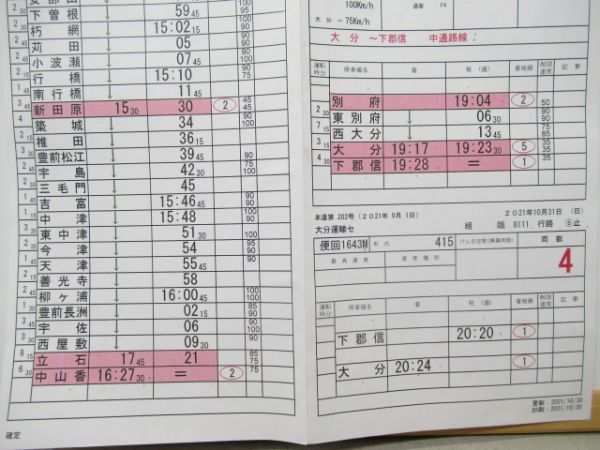 下曽根 ↓ 59 45
朽網 ↓ 15:02 15
苅田 ↓ 05
小波瀬 ↓ 07 45
行橋 ↓ 15:10
南行橋 ↓ 11 45
新田原 15 30 30 2
築城 ↓ 34
椎田 ↓ 36 15
豊前松江 ↓ 39 45
宇島 ↓ 42 30
三毛門 ↓ 45
吉富 ↓ 15:46 45
中津 ↓ 15:48
東中津 ↓ 51 30
今津 ↓ 54
天津 ↓ 55 45
善光寺 ↓ 58
柳ヶ浦 ↓ 16:00 45
豊前長洲 ↓ 02 15
宇佐 ↓ 06
西屋敷 ↓ 09 30
立石 17 45 21
中山香 16:27 30 = 2
確定
100Km/h
大分 ~75Km/h
大分 ~下郡信 中通路線
運転時分 停車場名 着 発(通) 着発線 制限速度 記事
別府 19:04 2 50
2 30 東別府 ↓ 06 30
7 15 西大分 ↓ 13 45
3 15 大分 19:17 19:23 30 5
4 30 下郡信 19:28 = 1
本運第 202号 (2021年 9月 1日) 2021年10月31日 (日)
大分運輸セ 組 回 8111 行路 5止
便回1643M 形式 415 両数
最高速度 速度種別 4
運転時分 停車場名 着 発(通) 着発線 制限速度 記事
下郡信 20:20 1
大分 20:24 1
更新:2021/10/30
印刷:2021/10/30